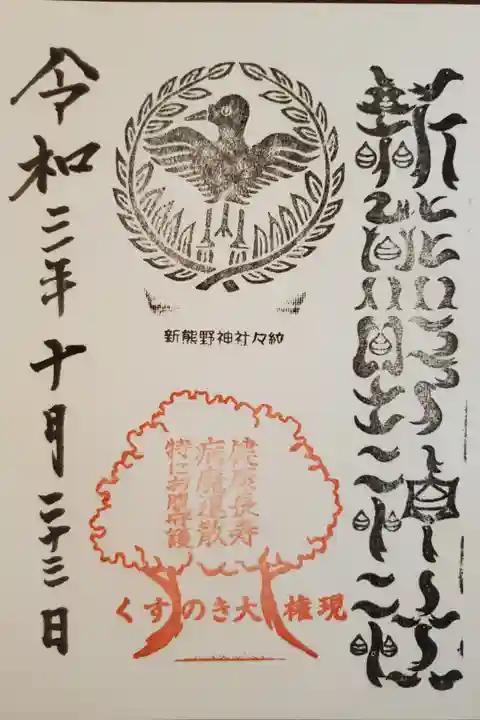 新熊野
新熊野神社々紋
健康長寿
病魔退散
特にお腹守護
くすのき大権現
令和三年十月二十三日